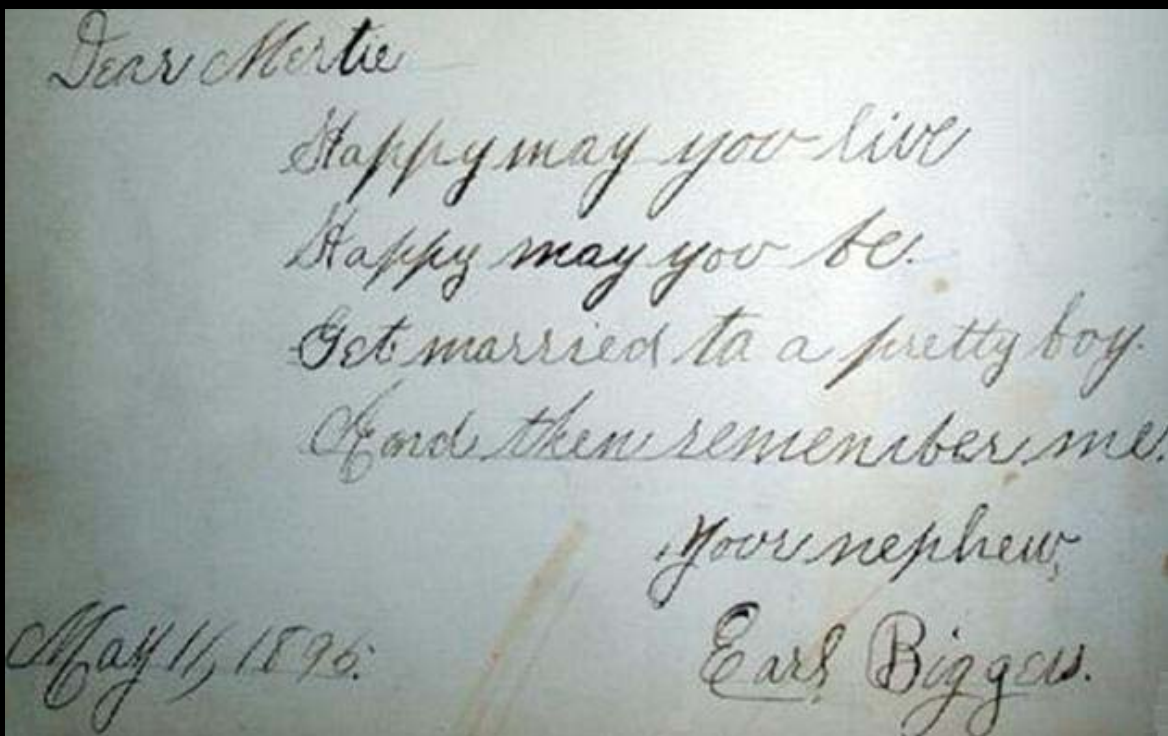 Dear Mertie
Happy may you live
Happy may you be.
Get married to a pretty boy.
And then remember me.
Your nephew,
May 11, 1896.
Earl Biggers.